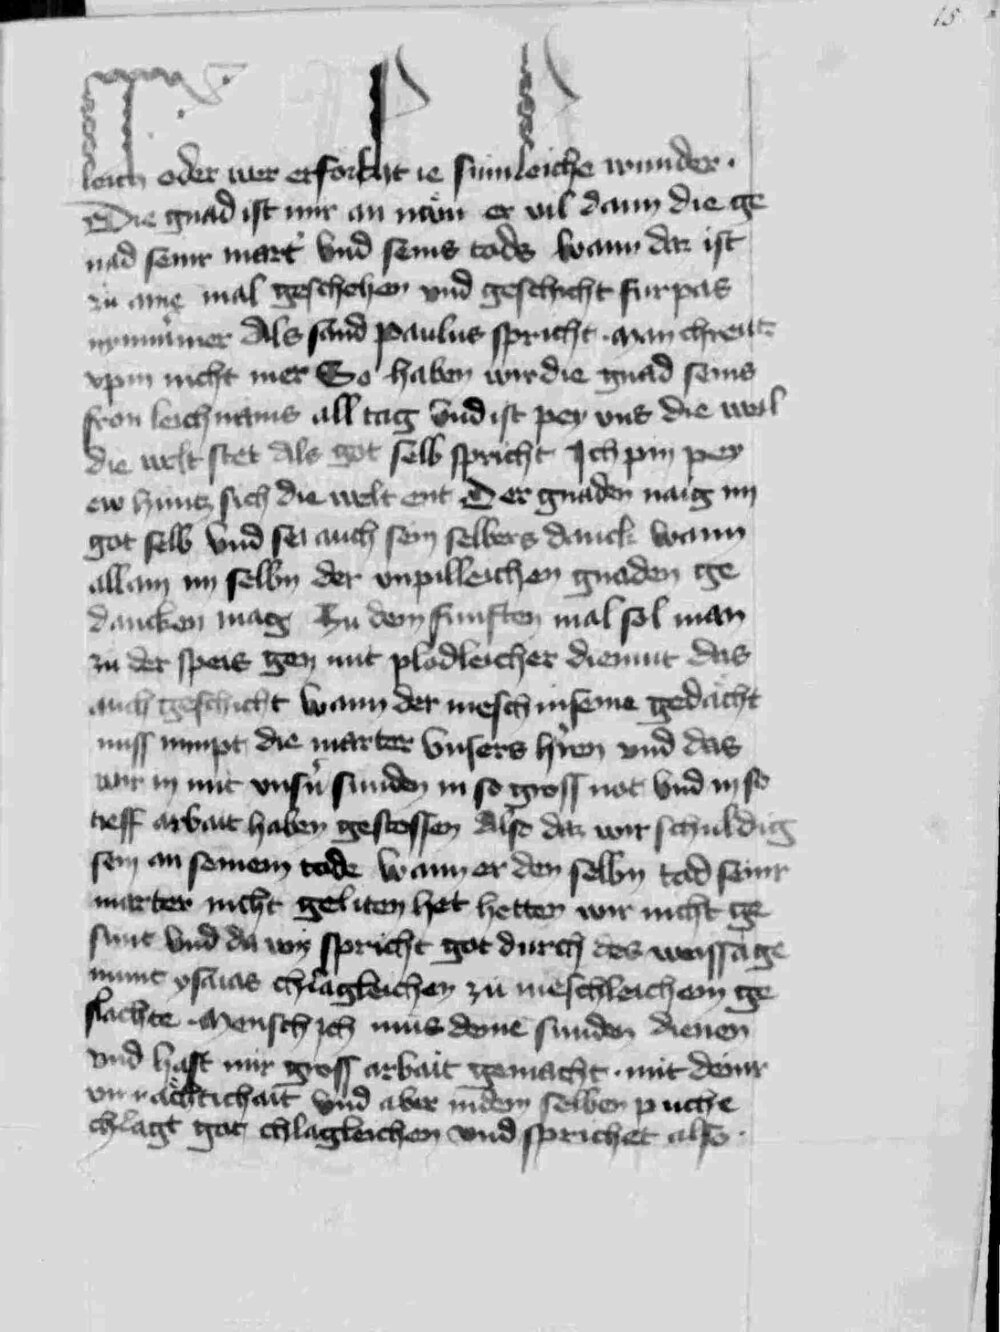 15
leich oder wer erforscht ie sunleiche wunder .
Die gnad ist mir an main er vil dann die ge
nad seinr mart' vnd seins tods wann daz ist
zu aine mal geschehen vnd geschicht furpas
nymmer Als sand paulus spricht . man chreutz
vpm nicht mer So haben wir die gnad seins
fron leichnams all tag vnd ist pey vns die weil
die welt stet Als got selb spricht Ich pin pey
ew huntz sich die welt ent Der gnaden naig im
got selb vnd sei auch sein selbers danck wann
allain im selbn der vnpilleichen gnaden ge
dancken mag Zu dem funften mal sol man
zu der speis gen mit plodleicher diemut das
auch geschicht wann der mesch in seine gedacht
nuss nimpt die marter vnsers h'ren vnd das
wir in mit vns'n sunden in so gross not vnd in so
tieff arbait haben gestossen Also daz wir schuldig
sein an seinem tode wann er den selbn tad seinr
marter nicht geliten het hetten wir nicht ge
sunt vnd da von spricht got durch des weissage
munt ysaias chlagleichen zu meschleichem ge
slachte . Mensch ich mus deine sunden dienen
vnd hast mir gross arbait gemacht . mit deinr
vnrachtichait vnd aber in dem selben puche
chlagt got chlagleichen vnd sprichet also .